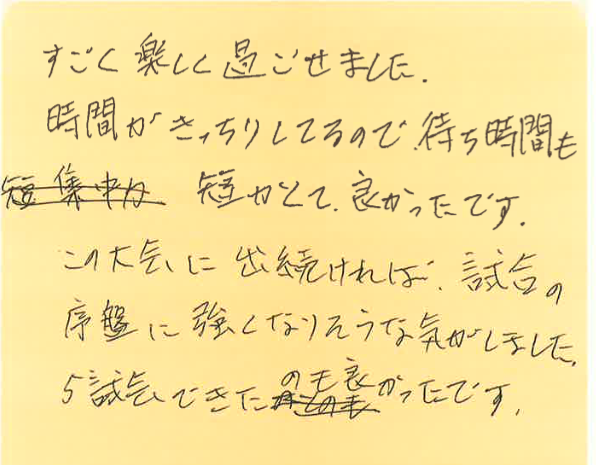 すごく楽しく過ごせました.
時間がきっちりしてるので、待ち時間も
短集中力 短かくて、良かったです.
この大会に出続ければ、試合の
序盤に強くなりそうな気がしました.
5試会できたのも良かったです.